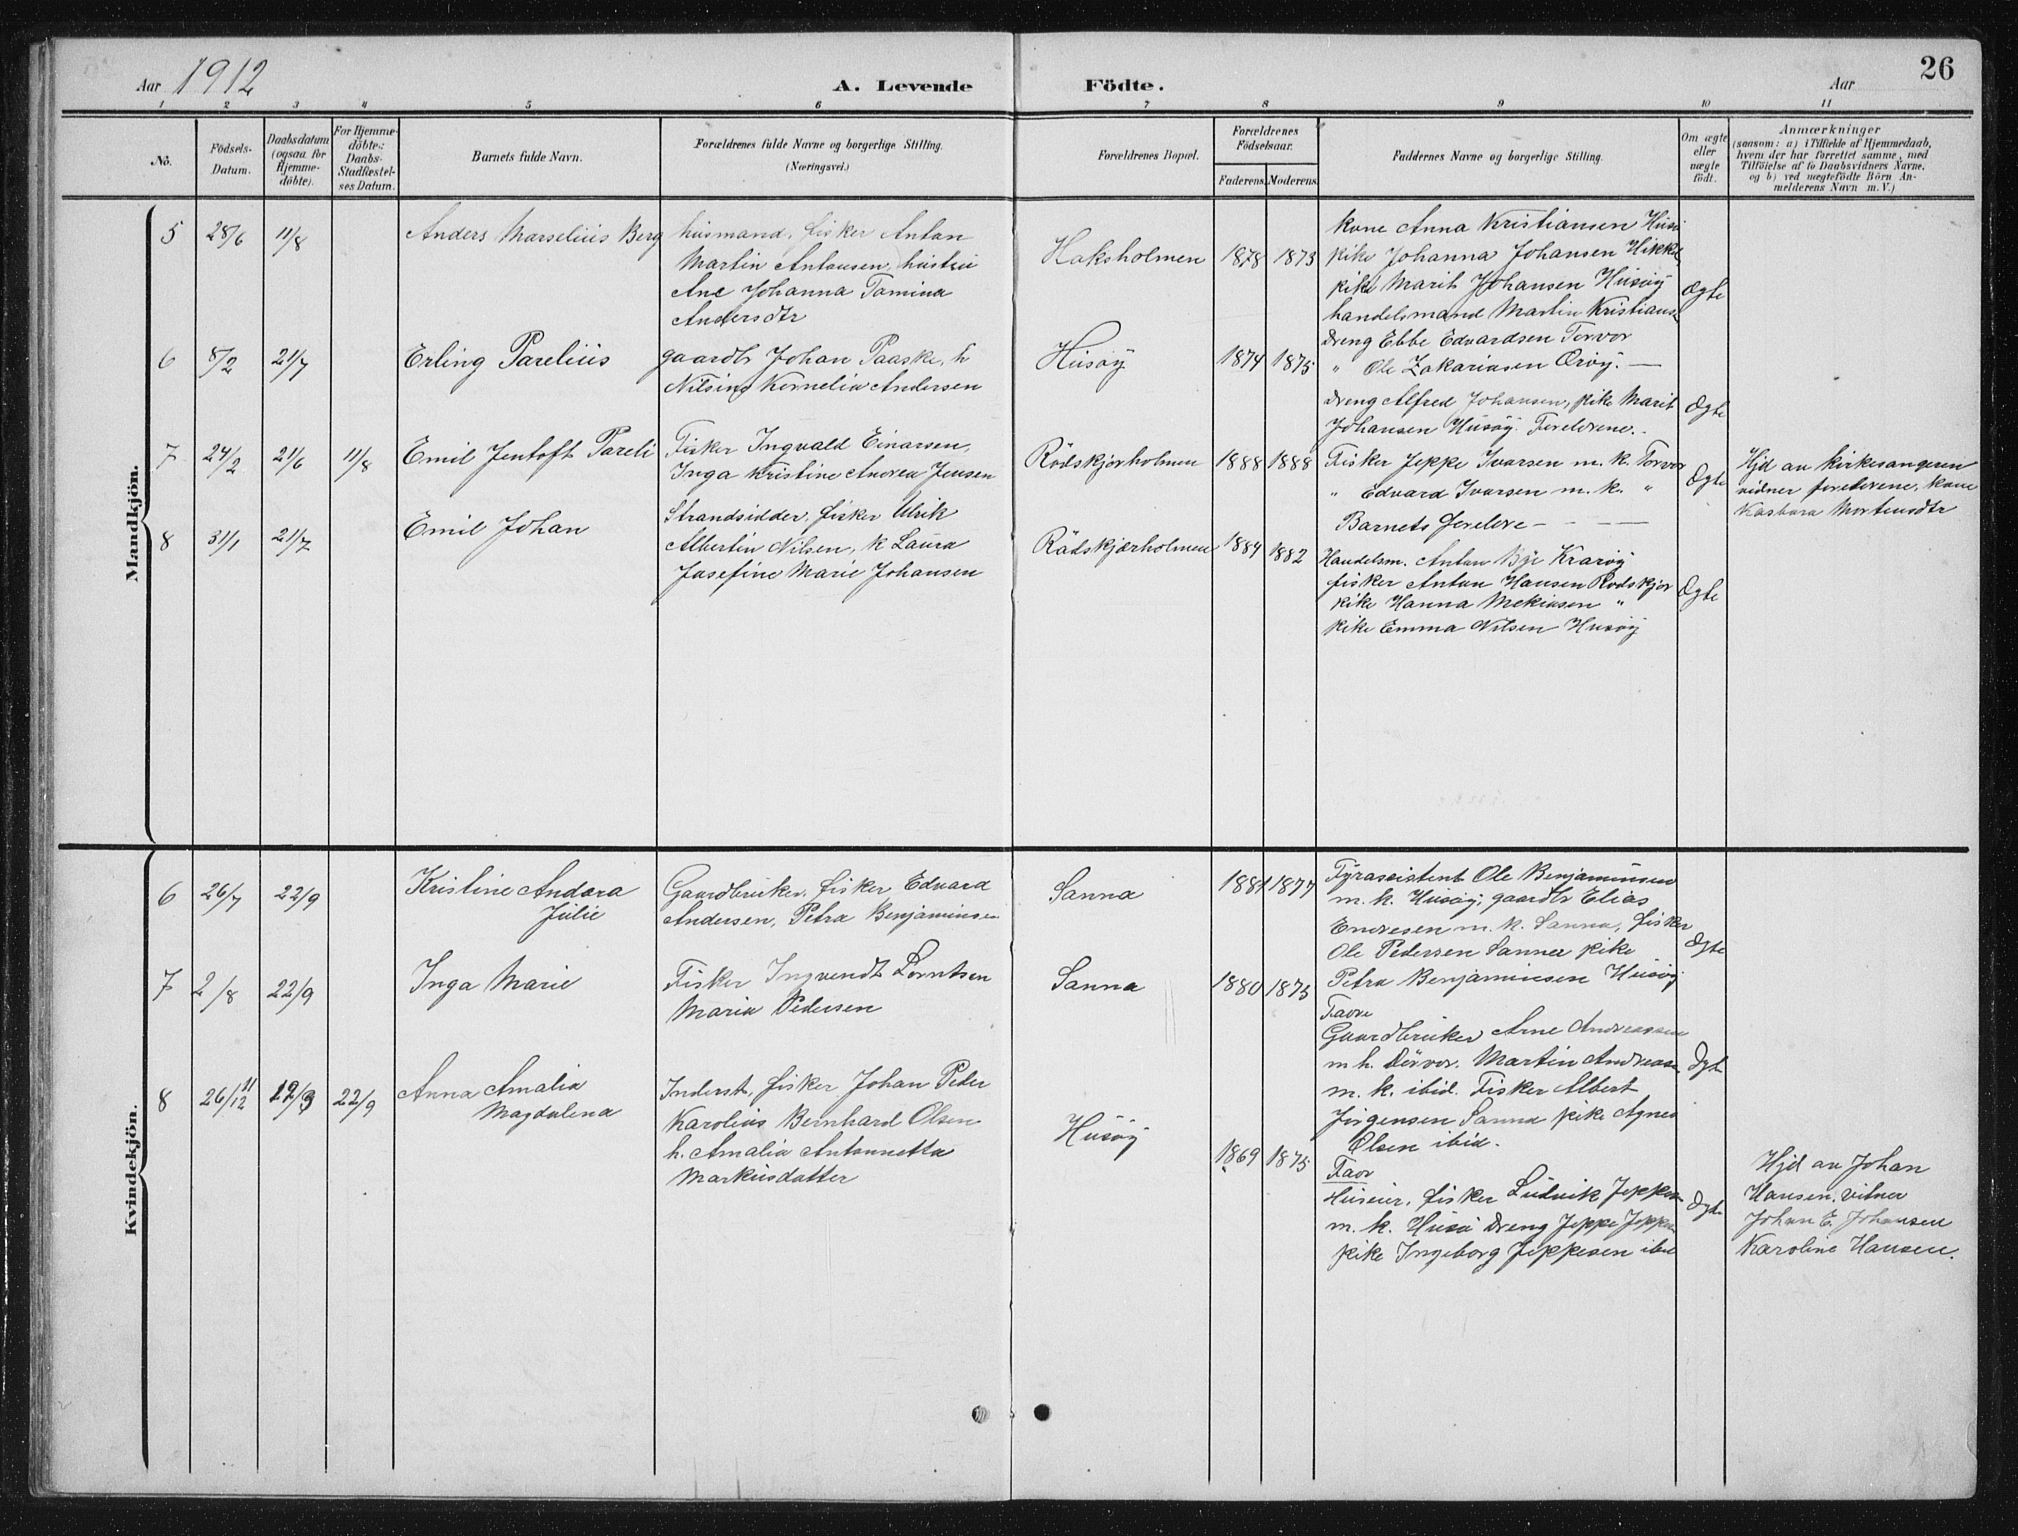 26
Aar 1912
A. Levende Födte.
Aar
1 2 3 4 5 6 7 8 9 10 11
No.
Födsels-Datum.
Daabsdatum (ogsaa for Hjemme-döbte).
For Hjemme-döbte: Daabs-Stadfæstel-ses Datum.
Barnets fulde Navn.
Forældrenes fulde Navne og borgerlige Stilling. (Næringsvei.)
Forældrenes Bopæl.
Forældrenes Födselsaar.
Faderens. Moderens.
Faddernes Navne og borgerlige Stilling.
Om ægte eller uægte födt.
Anmærkninger
(saasom: a) i Tilfælde af Hjemmedaab,
hvem der har forrettet samme, med
Tilföielse af to Daabsvidners Navne,
og b) ved uægtefödte Börn An-
melderens Navn m. V.)
Mandkjön.
5 28/6 11/8
Anders Marselius Berg
husmand, fisker Anton
Martin Antonsen, hustru
Ane Johanna Tomina
Andersdtr
Haksholmen 1878 1873
kone Anna Kristiansen
pike Johanna Johansen
pike Marit Johansen Husöy
handelsmand Martin Kristians
Ægte
6 8/2 21/7
Erling Parelius
gaardbr Johan Paaske, h
Kornelia Andersen
Husöy 1874 1875
Dreng Ebbe Edvardsen Torvor
" Ole Zakariasen
Dreng Alfred Johansen, pike Marit
Johansen Husöy. Foreldrene.
Ægte
7 24/2 21/6 11/8
Emil Jentoft Pareli
Fisker Ingvald Einarsen,
Inga Kristine Andrea Jensen
Rödskjærholmen 1888 1888
Fisker Jeppe Ivarsen m. k. Torvor
" Edvard Ivarsen m. k. "
Barnets foreldre
Ægte
Hjd av kirkesangeren
vidner foreldrene, kone
Kasbara Mortensdtr
8 31/1 21/7
Emil Johan
Strandsidder, fisker Ulrik
Albertin Nilsen, k Laura
Josefine Marie Johansen
Rödskjærholmen 1884 1882
Handelsm. Anton Bye Kvaröy
fisker Anton Hansen Rödskjær
pike Hanna Mekiasen "
pike Emma Nilsen Husöy
Ægte
Kvindekjön.
6 26/7 22/9
Kristine Andora
Julie
Gaardbruker, fisker Edvard
Andersen, Petra Benjaminsen
Sanna 1881 1877
Fyrassistent Ole Benjaminsen
m. k. Husöy, gaardbr Elias
Endresen m. k. Sanna, fisker
Ole Pedersen Sanna pike
Petra Benjaminsen Husöy
Ægte
7 2/8 22/9
Inga Marie
Fisker Ingvendt Lorntsen
Maria Pedersen
Sanna 1880 1875
Gaardbruker Arne Andreassen
m. h. Martin Andreas
m. k. ibid. Fisker Albert
Jörgensen Sanna pike Agnes
Olsen ibid.
Ægt
8 26/12 11 22/9
Anna Amalia
Magdalena
Inderst, fisker Johan Peder
Karolius Bernhard Olsen
h. Amalia Antonnetta
Markusdatter
Husöy 1869 1875
Husmand, fisker Ludvik Jeppes
m. k. Husö Dreng Jeppe Jeppes
pike Ingeborg Jeppesen ibid
Ægte
Hjd av Johan
Hansen, vitner
Johan E. Johansen
Karoline Hansen.